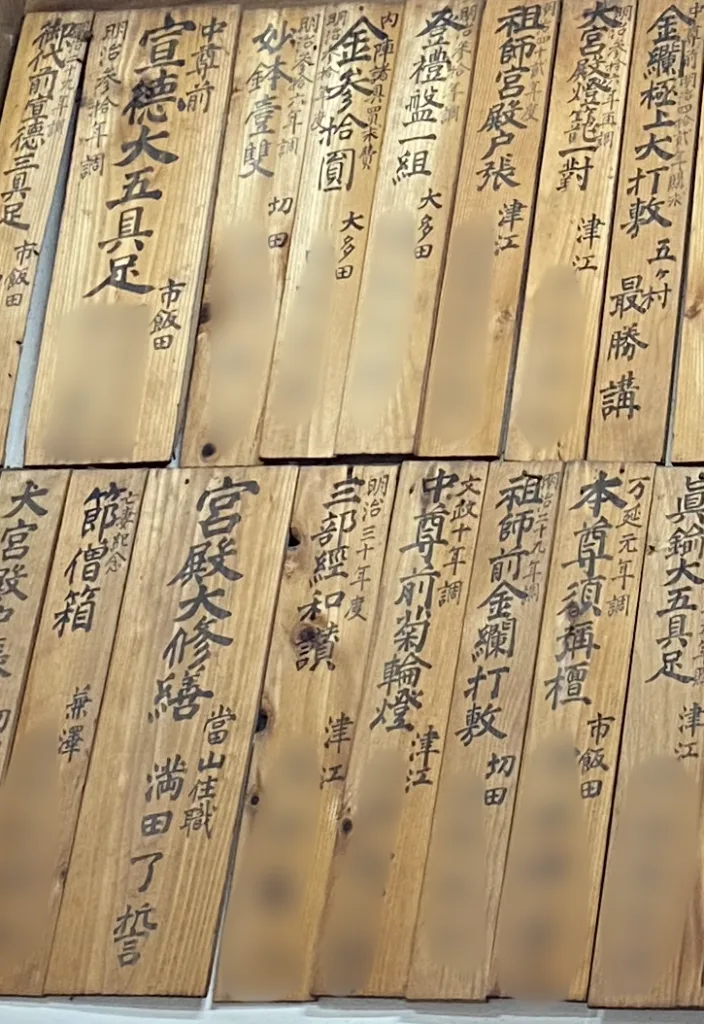 金襴極上大打敷
五ヶ村
最勝講
大宮殿燈籠一對
津江
祖師宮殿戸張
津江
登禮盤一組
大多田
内陣諸具買求費
金參拾圓
大多田
明治参拾六年調
妙鉢壹雙
切田
中尊前
宣德大五具足
明治参拾年調
市飯田
御代前宣德三具足
市飯田
眞鍮大五具足
津江
万延元年調
本尊須彌檀
市飯田
明治二十九年調
祖師前金襴打敷
切田
文政十年調
中尊前菊輪燈
津江
明治三十年度
三部經和讃
津江
宮殿大修繕
當山住職
満田了誓
亡妻紀念
節僧箱
兼澤
大宮殿戸張
切